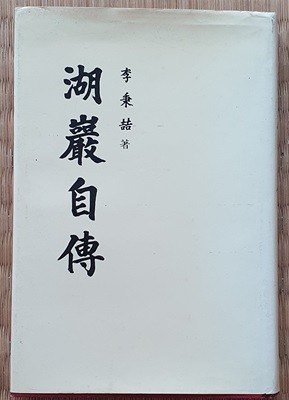 李秉喆 著
湖巖自傳